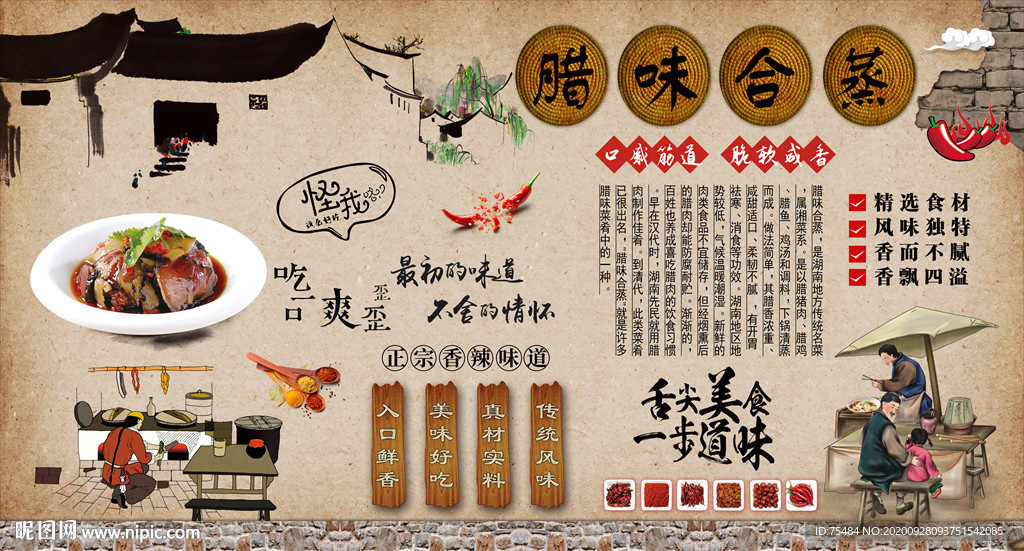 腊味合蒸
口感筋道 脆软咸香
腊味合蒸，是湖南地方传统名菜
，属湘菜系。是以腊猪肉、腊鸡
、腊鱼、鸡汤和调料，下锅清蒸
而成。做法简单，其腊香浓重、
咸甜适口、柔韧不腻，有开胃
祛寒、消食等功效。湖南地区地
势较低，气候温暖潮湿。新鲜的
肉类食品不宜储存，但经烟熏后
的腊肉却能防腐耐贮。渐渐的，
百姓也养成喜吃腊肉的饮食习惯
。早在汉代时，湖南先民就用腊
肉制作佳肴。到清代，此类菜肴
已很出名，“腊味合蒸”就是许多
腊味菜肴中的一种。
精选食材
风味独特
香而不腻
香飘四溢
怪我咯??
这么好吃
吃一口
爽
歪歪
最初的味道
不舍的情怀
正宗香辣味道
入口鲜香
美味好吃
真材实料
传统风味
舌尖美食
一步道味
昵图网 www.nipic.com
ID:75484 NO:20200928093751542085